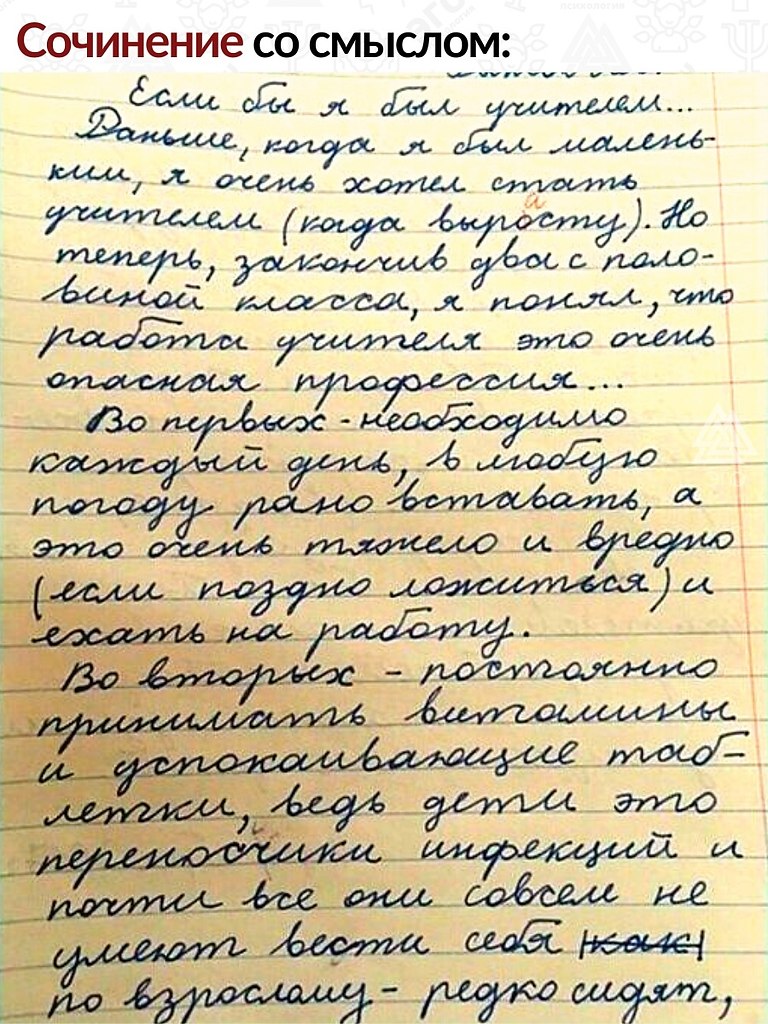 Сочинение со смыслом:
Если бы я был учителем...
Раньше, когда я был малень-
ким, я очень хотел стать
а
учителем (когда выросту). Но
теперь, закончив два с поло-
виной класса, я понял, что
работа учителя это очень
опасная профессия...
Во первых - необходимо
каждый день, в любую
погоду рано вставать, а
это очень тяжело и вредно
(если поздно ложиться) и
ехать на работу.
Во вторых - постоянно
принимать витамины
и успокаивающие таб-
летки, ведь дети это
переносчики инфекций и
почти все они совсем не
умеют вести себя как
по взрослому - редко сидят,